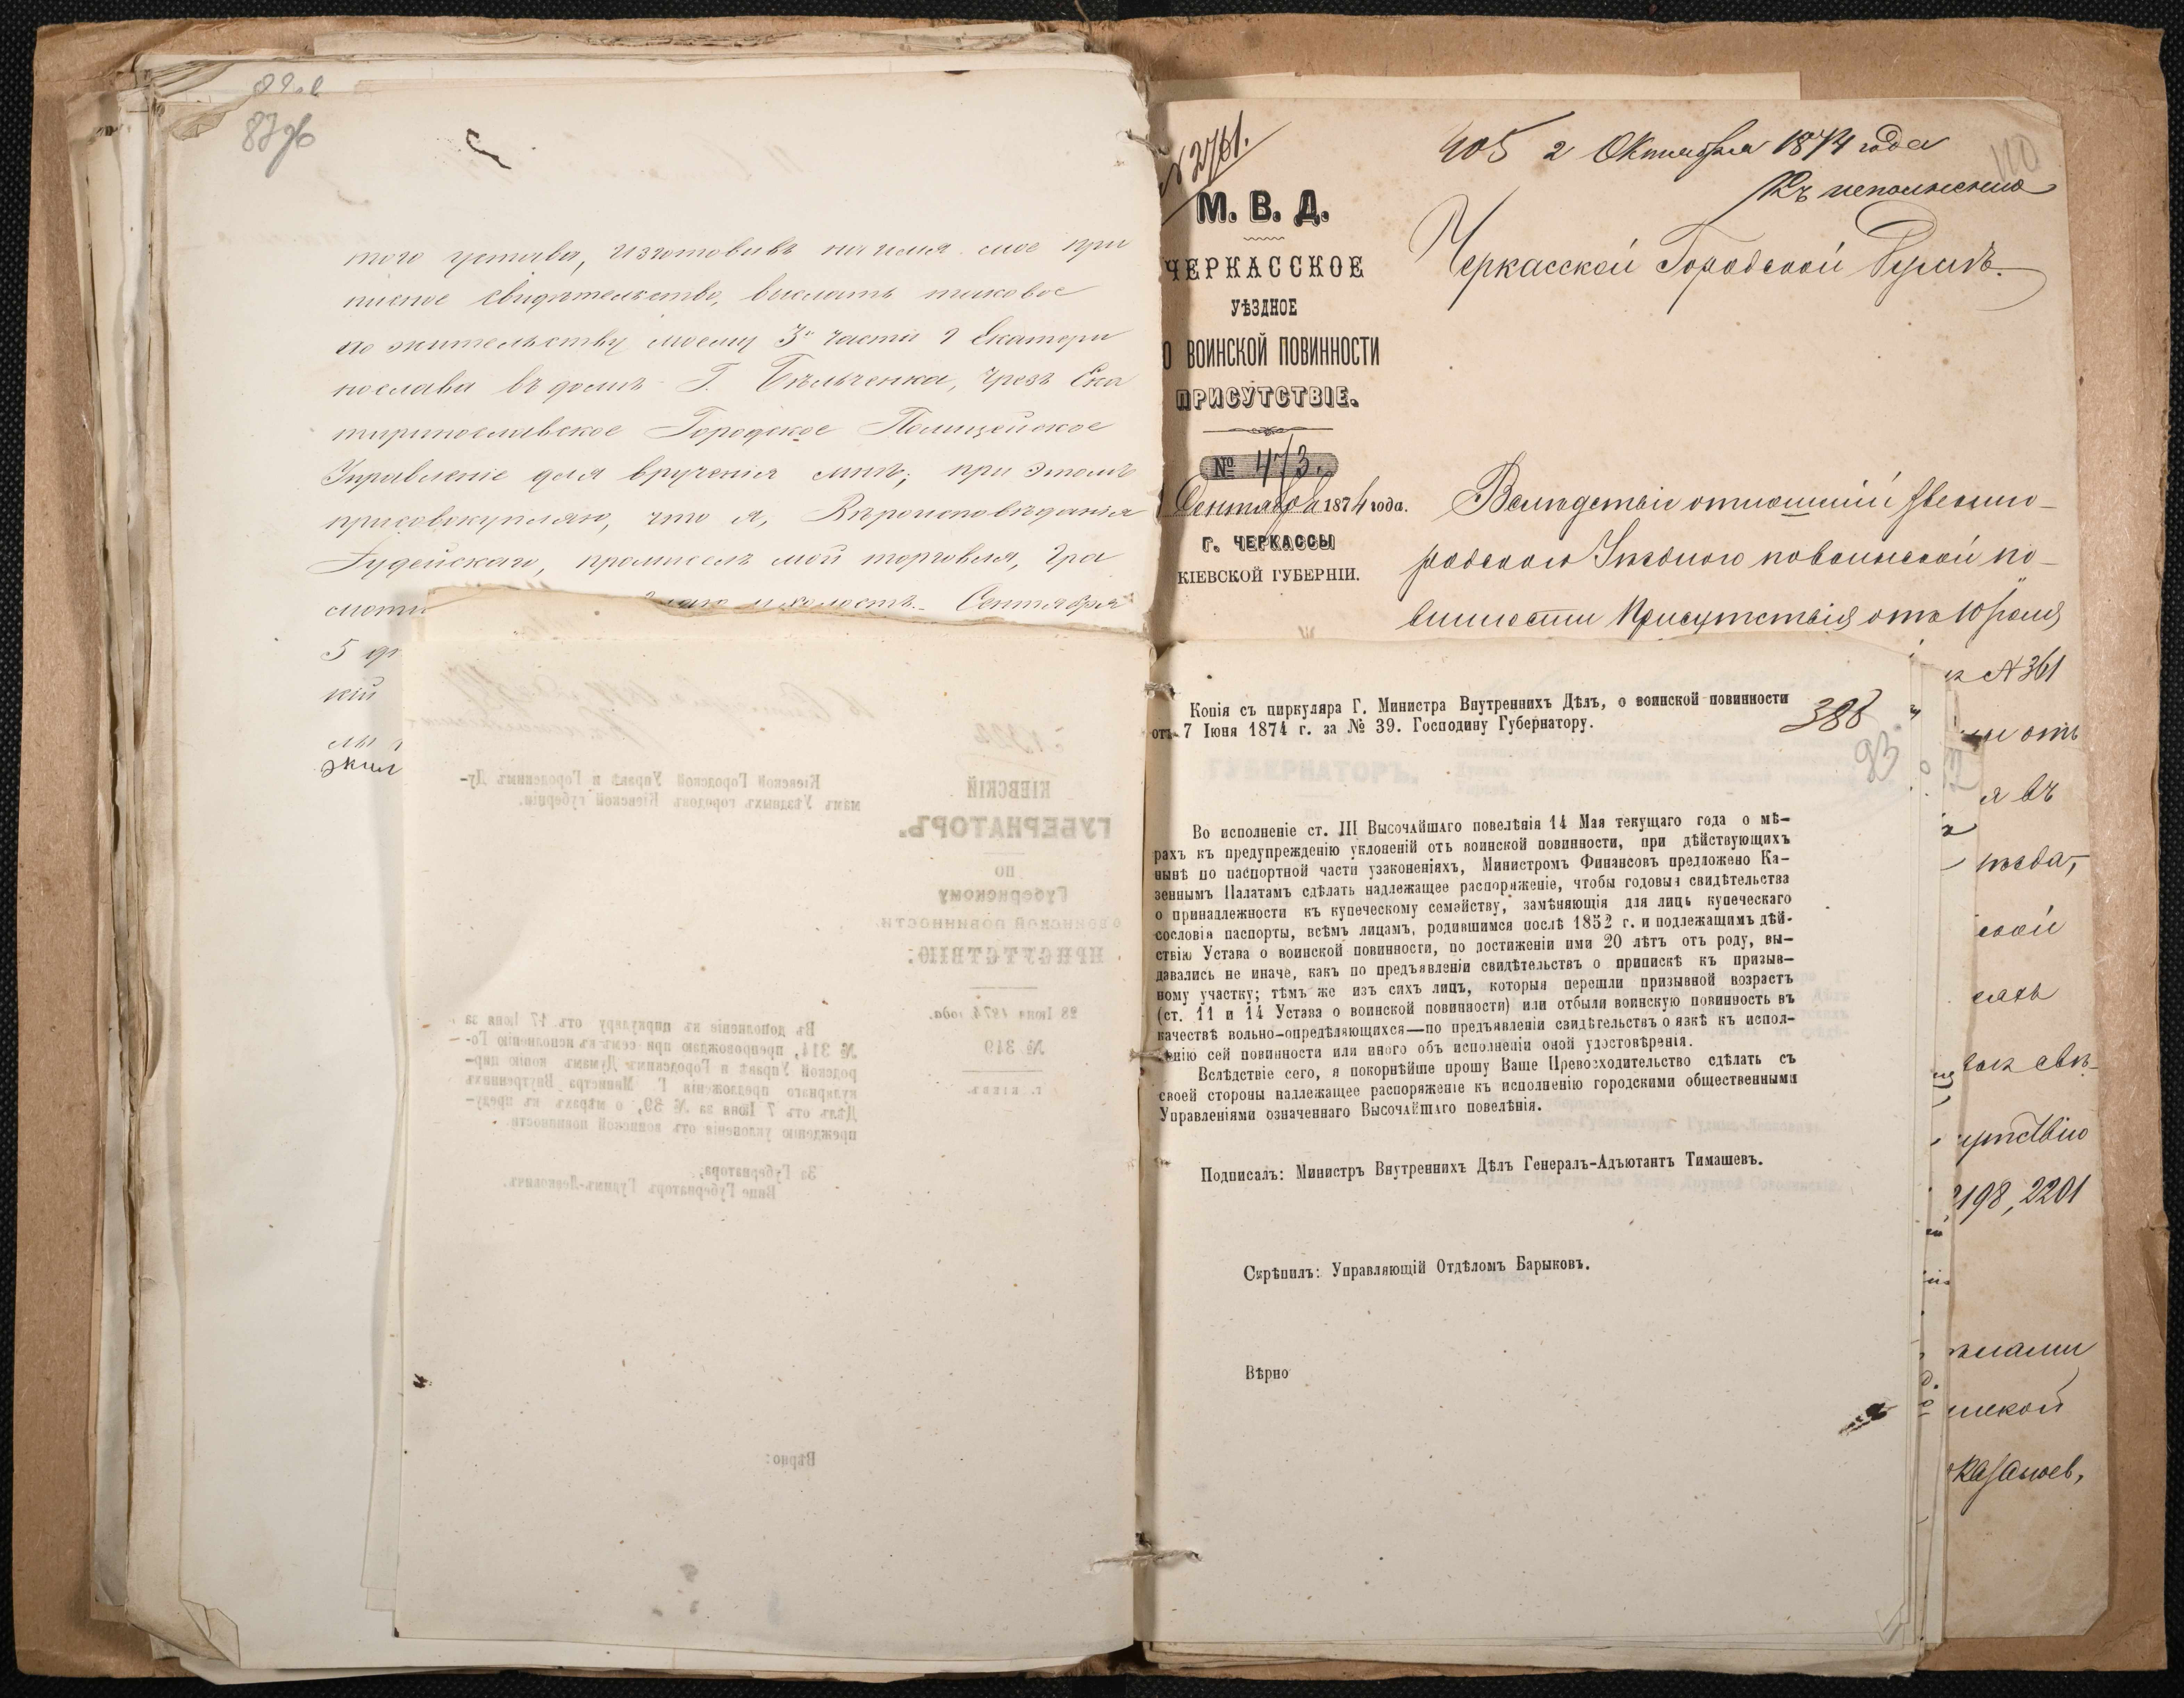 87об
того устава, изготовивъ на имя мое при
писное свидѣтельство, выслать таковое
по жительству моему 3й части г Екатери
нослава въ домѣ Г. Бѣльченка, чрезъ Ека
териносл​авское Городское Полицейское
Управленіе для врученія мнѣ; при этомъ
присовокупляю, что я, Вѣроисповѣданія
Іудейскаго, промыселъ мой торговля, гра
Сентября
5
кій
жил
КІЕВСКІЙ
ГУБЕРНАТОРЪ.
ПО
Губернскому
о воинской повинности
ПРИСУТСТВІЮ:
28 Іюня 1874 года.
№ 349
Г. КІЕВЪ.
Кіевской Городской Управѣ и Городскимъ Ду-
мамъ Уѣздныхъ городовъ Кіевской губерніи.
Въ дополненіе къ циркуляру отъ 17 Іюня за
№ 314, препровождаю при семъ къ исполненію Го-
родской Управѣ и Городскимъ Думамъ копію цир-
кулярнаго предложенія Г. Министра Внутреннихъ
Дѣлъ отъ 7 Іюня за № 39, о мѣрахъ къ преду-
прежденію уклоненія отъ воинской повинности.
За Губернатора,
Вице Губернаторъ Гудимъ-Левковичъ.
Вѣрно:
№ 2761.
405 2 Октября 1874 года
110
Къ исполненію
М. В. Д.
ЧЕРКАССКОЕ
УѢЗДНОЕ
О ВОИНСКОЙ ПОВИННОСТИ
ПРИСУТСТВІЕ.
№ 473.
Сентября 1874 года.
Г. ЧЕРКАССЫ
КІЕВСКОЙ ГУБЕРНІИ.
Черкасской Городской Думѣ.
Вслѣдствіе отношенія Звенино-
родскаго Уѣзднаго по воинской по-
винности Присутствія отъ 10 Іюля
№ 361
отъ
я въ
ской
2198, 2201
Копія съ циркуляра Г. Министра Внутреннихъ Дѣлъ, о воинской повинности
отъ 7 Іюня 1874 г. за № 39. Господину Губернатору.
388
93
Во исполненіе ст. III Высочайшаго повелѣнія 14 Мая текущаго года о мѣ-
рахъ къ предупрежденію уклоненій отъ воинской повинности, при дѣйствующихъ
нынѣ по паспортной части узаконеніяхъ, Министромъ Финансовъ предложено Ка-
зеннымъ Палатамъ сдѣлать надлежащее распоряженіе, чтобы годовыя свидѣтельства
о принадлежности къ купеческому семейству, замѣняющія для лицъ купеческаго
сословія паспорты, всѣмъ лицамъ, родившимся послѣ 1852 г. и подлежащимъ дѣй-
ствію Устава о воинской повинности, по достиженіи ими 20 лѣтъ отъ роду, вы-
давались не иначе, какъ по предъявленіи свидѣтельствъ о припискѣ къ призыв-
ному участку; тѣмъ же изъ сихъ лицъ, которыя перешли призывной возрастъ
(ст. 11 и 14 Устава о воинской повинности) или отбыли воинскую повинность въ
качествѣ вольно-опредѣляющихся—по предъявленіи свидѣтельствъ о явкѣ къ испол-
ненію сей повинности или иного объ исполненіи оной удостовѣренія.
Вслѣдствіе сего, я покорнѣйше прошу Ваше Превосходительство сдѣлать съ
своей стороны надлежащее распоряженіе къ исполненію городскими общественными
Управленіями означеннаго Высочайшаго повелѣнія.
Подписалъ: Министръ Внутреннихъ Дѣлъ Генералъ-Адъютантъ Тимашевъ.
Скрѣпилъ: Управляющій Отдѣломъ Барыковъ.
Вѣрно